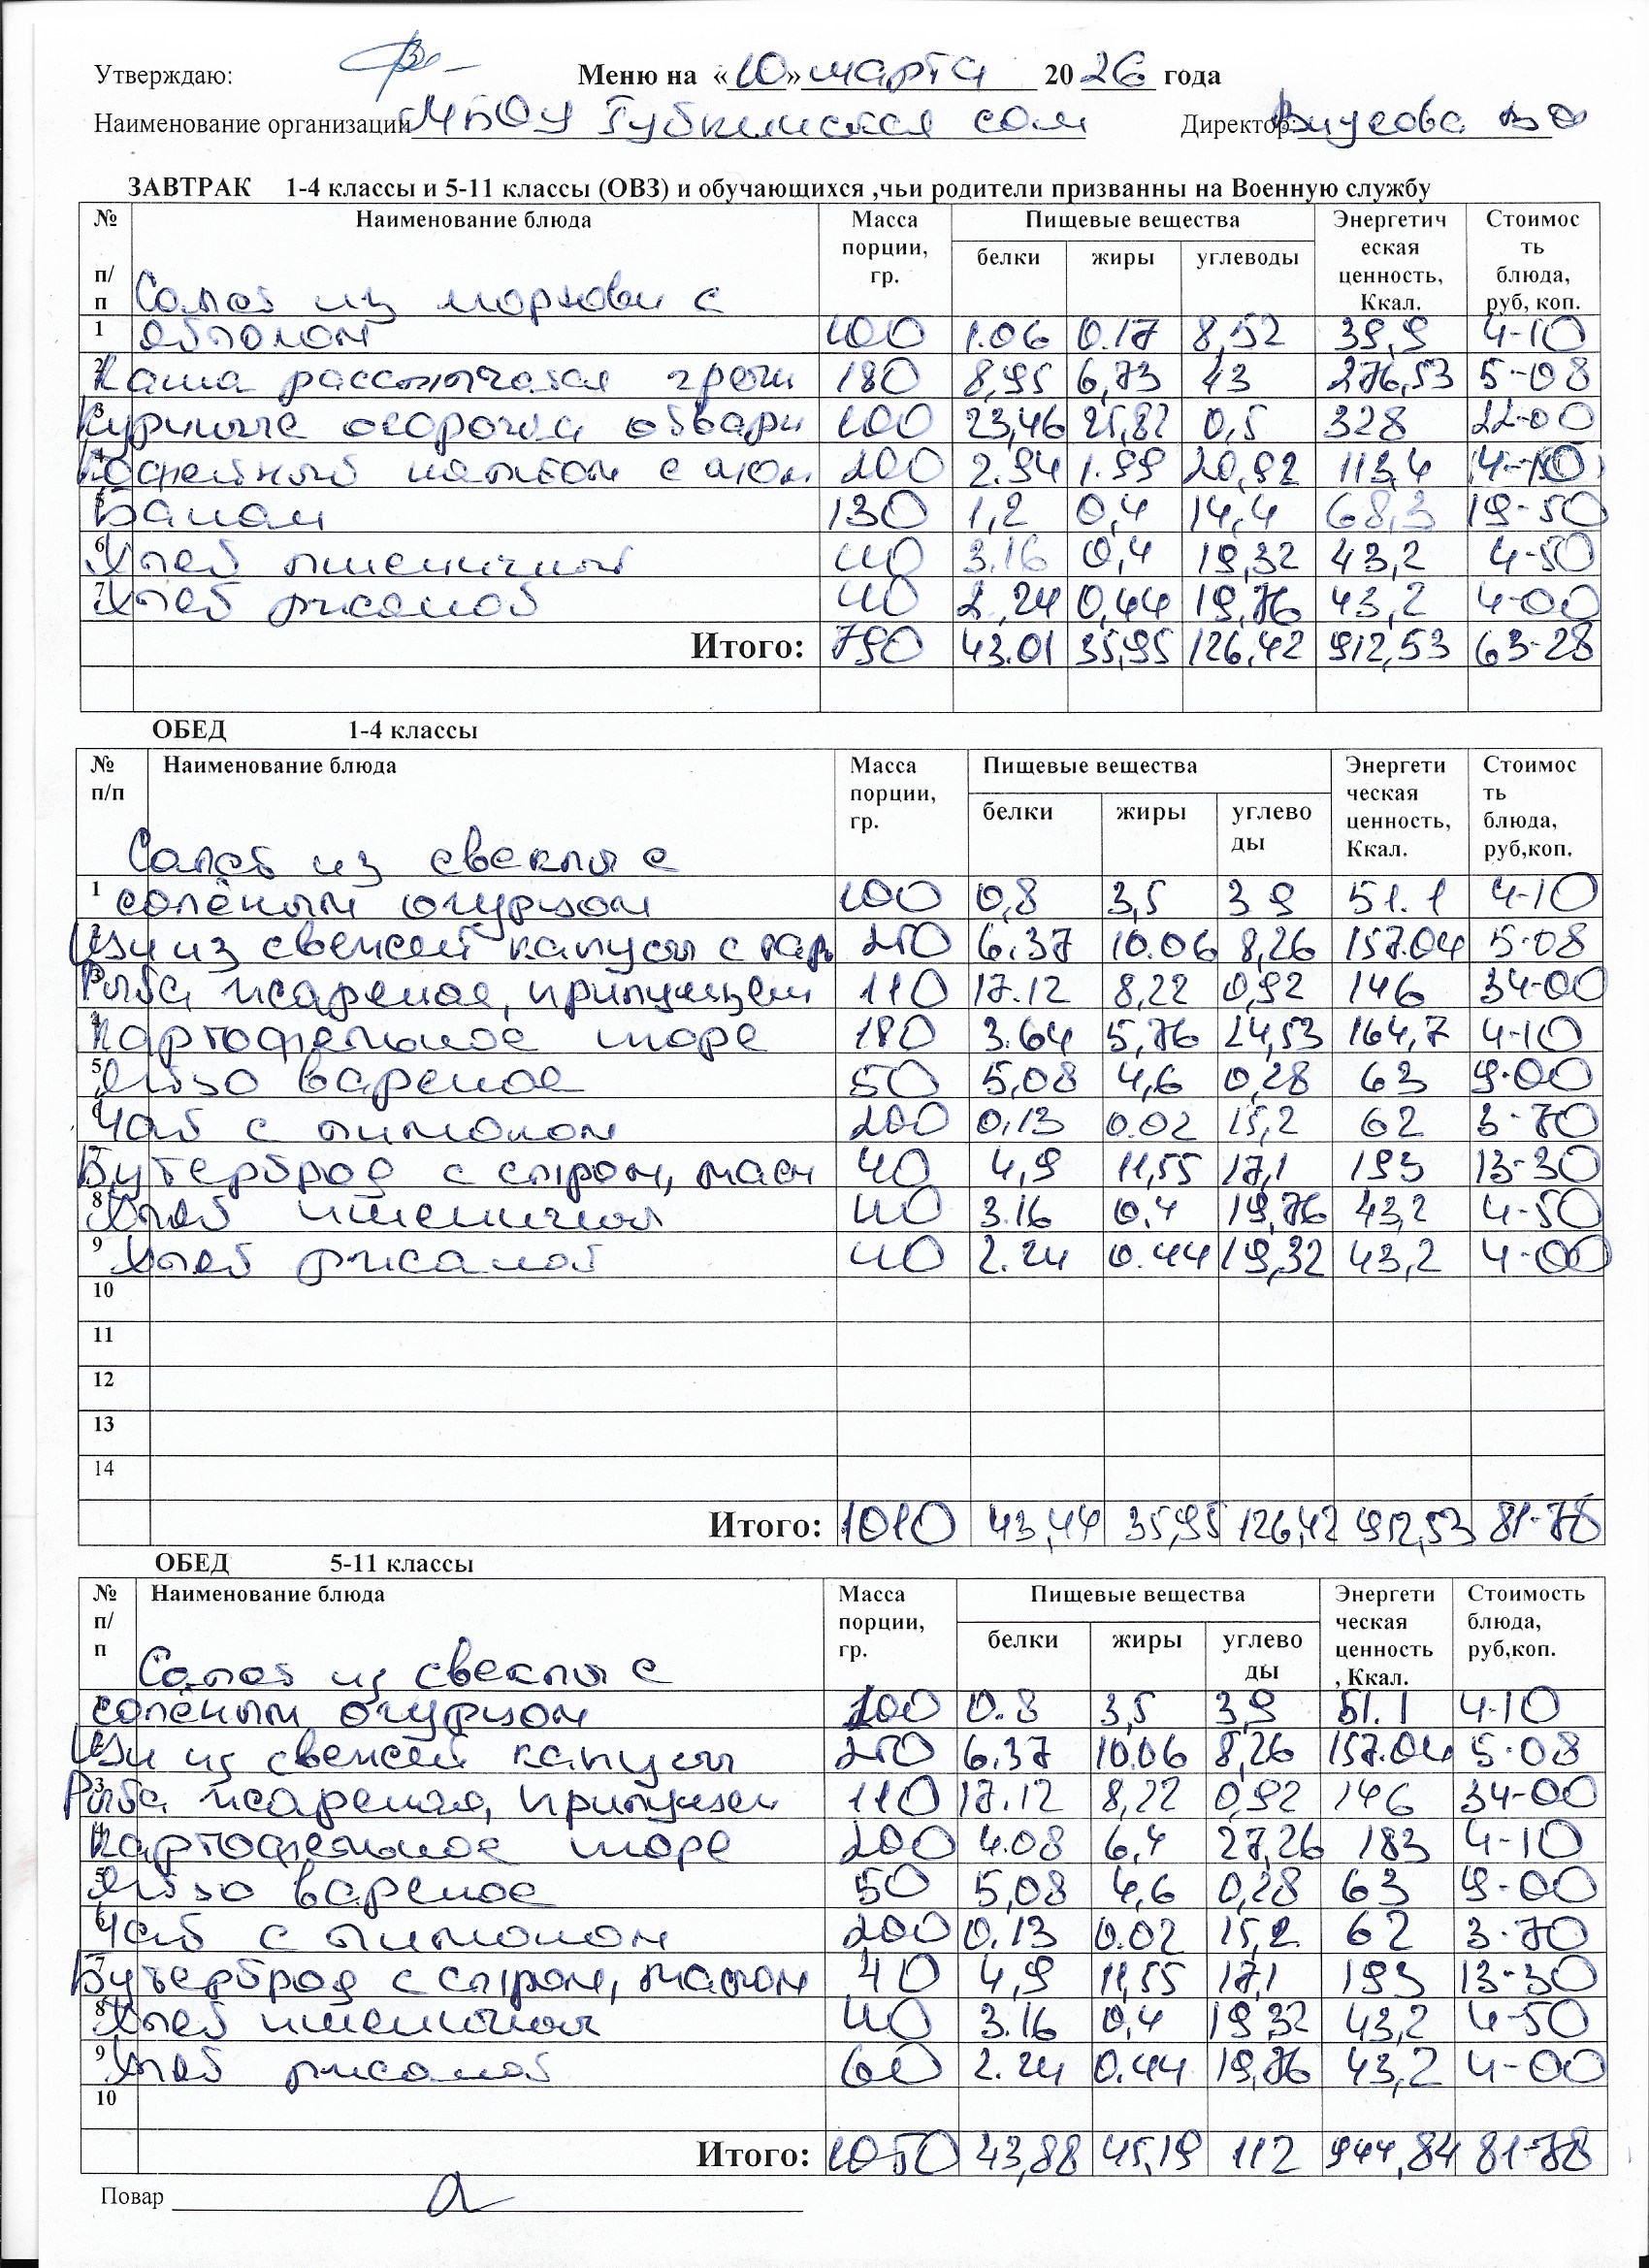 Утверждаю:
Меню на «10» марта 2026 года
Наименование организации МБОУ Губкинская сош Директор:
ЗАВТРАК 1-4 классы и 5-11 классы (ОВЗ) и обучающихся ,чьи родители призванны на Военную службу
№ п/п Наименование блюда Масса порции, гр. Пищевые вещества белки жиры углеводы Энергетическая ценность, Ккал. Стоимость блюда, руб, коп.
Салат из моркови с
1 яблоком 100 1.06 0.17 8,52 39,9 4-10
2 Каша рассыпчатая гречн 180 8,95 6,73 43 276,53 5-08
3 Куриные окорочка отварн 100 23,46 25,82 0,5 328 22-00
4 Кофейный напиток с мол. 200 2.94 1.99 20,92 113,4 4-10
5 Банан 130 1,2 0,4 14,4 68,3 19-50
6 Хлеб пшеничный 40 3.16 0,4 19,32 43,2 4-50
7 Хлеб ржаной 40 2,24 0,44 19,76 43,2 4-00
Итого: 790 43.01 35,95 126,42 912,53 63-28
ОБЕД 1-4 классы
№ п/п Наименование блюда Масса порции, гр. Пищевые вещества белки жиры углеводы Энергетическая ценность, Ккал. Стоимость блюда, руб,коп.
Салат из свеклы с
1 солёным огурцом 100 0,8 3,5 3 9 51.1 4-10
2 Щи из свежей капусты с кар 250 6.37 10.06 8,26 157.04 5-08
3 Рыба жареная, припущен 110 17.12 8,22 0,92 146 34-00
4 Картофельное пюре 180 3.64 5,76 24,53 164,7 4-10
5 Яйцо вареное 50 5,08 4,6 0,28 63 9-00
6 Чай с лимоном 200 0,13 0.02 15,2 62 3-70
7 Бутерброд с сыром, масл 40 4,9 11,55 17,1 193 13-30
8 Хлеб пшеничный 40 3.16 0,4 19,76 43,2 4-50
9 Хлеб ржаной 40 2.24 0.44 19,32 43,2 4-00
10
11
12
13
14
Итого: 1010 43,44 35,95 126,42 912,53 81-78
ОБЕД 5-11 классы
№ п/п Наименование блюда Масса порции, гр. Пищевые вещества белки жиры углеводы Энергетическая ценность, Ккал. Стоимость блюда, руб,коп.
Салат из свеклы с
1 солёным огурцом 100 0.8 3,5 3,9 51.1 4-10
2 Щи из свежей капусты 250 6.37 10.06 8,26 157.04 5-08
3 Рыба жареная, припущен 110 17.12 8,22 0,92 146 34-00
4 Картофельное пюре 200 4.08 6,4 27,26 183 4-10
5 Яйцо вареное 50 5,08 4,6 0,28 63 9-00
6 Чай с лимоном 200 0,13 0.02 15,2 62 3-70
7 Бутерброд с сыром, маслом 40 4,9 11,55 17,1 193 13-30
8 Хлеб пшеничный 40 3.16 0,4 19,32 43,2 4-50
9 Хлеб ржаной 60 2.24 0.44 19,76 43,2 4-00
10
Итого: 1050 43,88 45,19 112 944,84 81-78
Повар